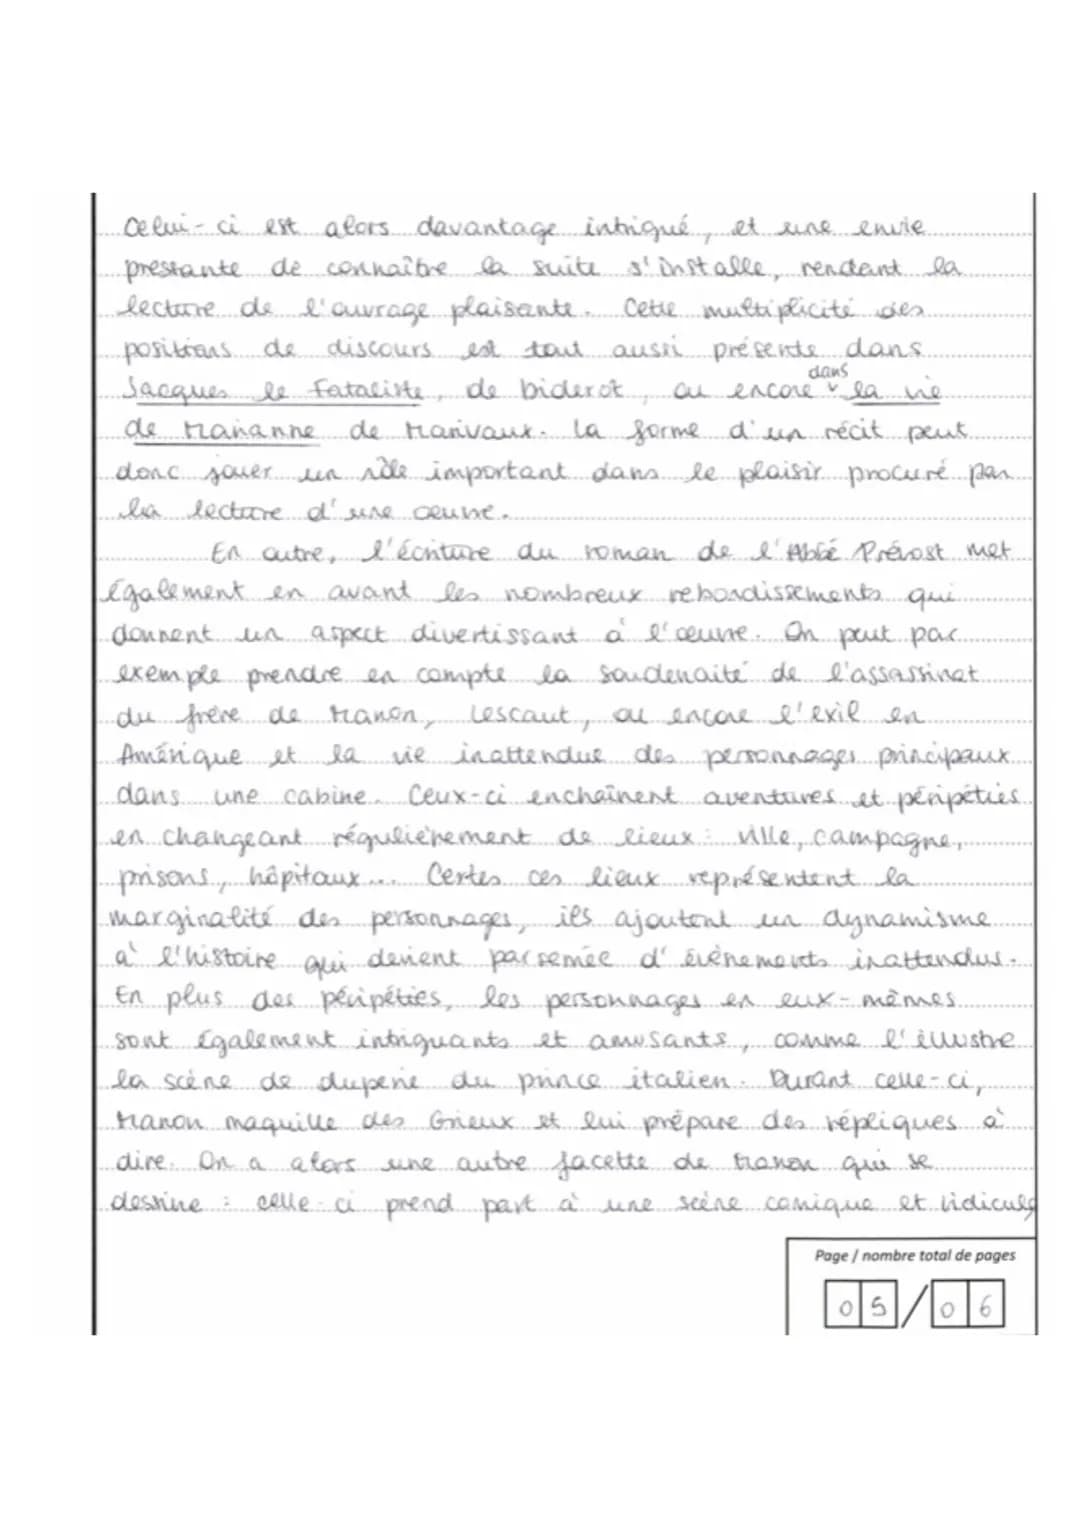 Celui-ci est alors davantage intrigué, et une envie
pressante de connaître la suite s'installe, rendant la
lecture de l'ouvrage plaisante. Cette multiplicité des
positions de discours est tout aussi présente dans
dans
Jacques le Fataliste, de Diderot, ou encore ˅ la vie
de Marianne de Marivaux. La forme d'un récit peut
donc jouer un rôle important dans le plaisir procuré par
la lecture d'une œuvre.
En outre, l'écriture du roman de l'Abbé Prévost met
également en avant les nombreux rebondissements qui
donnent un aspect divertissant à l'œuvre. On peut par
exemple prendre en compte la soudenaité de l'assassinat
du frère de Manon, Lescaut, ou encore l'exil en
Amérique et la vie inattendue des personnages principaux
dans une cabine. Ceux-ci enchaînent aventures et péripéties
en changeant régulièrement de lieux : ville, campagne,
prisons, hôpitaux... Certes ces lieux représentent la
marginalité des personnages, ils ajoutent un dynamisme
à l'histoire qui devient parsemée d'évènements inattendus.
En plus des péripéties, les personnages en eux-mêmes
sont également intriguants et amusants, comme l'illustre
la scène de duperie du prince italien. Durant celle-ci,
Manon maquille des Grieux et lui prépare des répliques à
dire. On a alors une autre facette de Manon qui se
dessine : celle-ci prend part à une scène comique et ridicule
Page / nombre total de pages
05/06